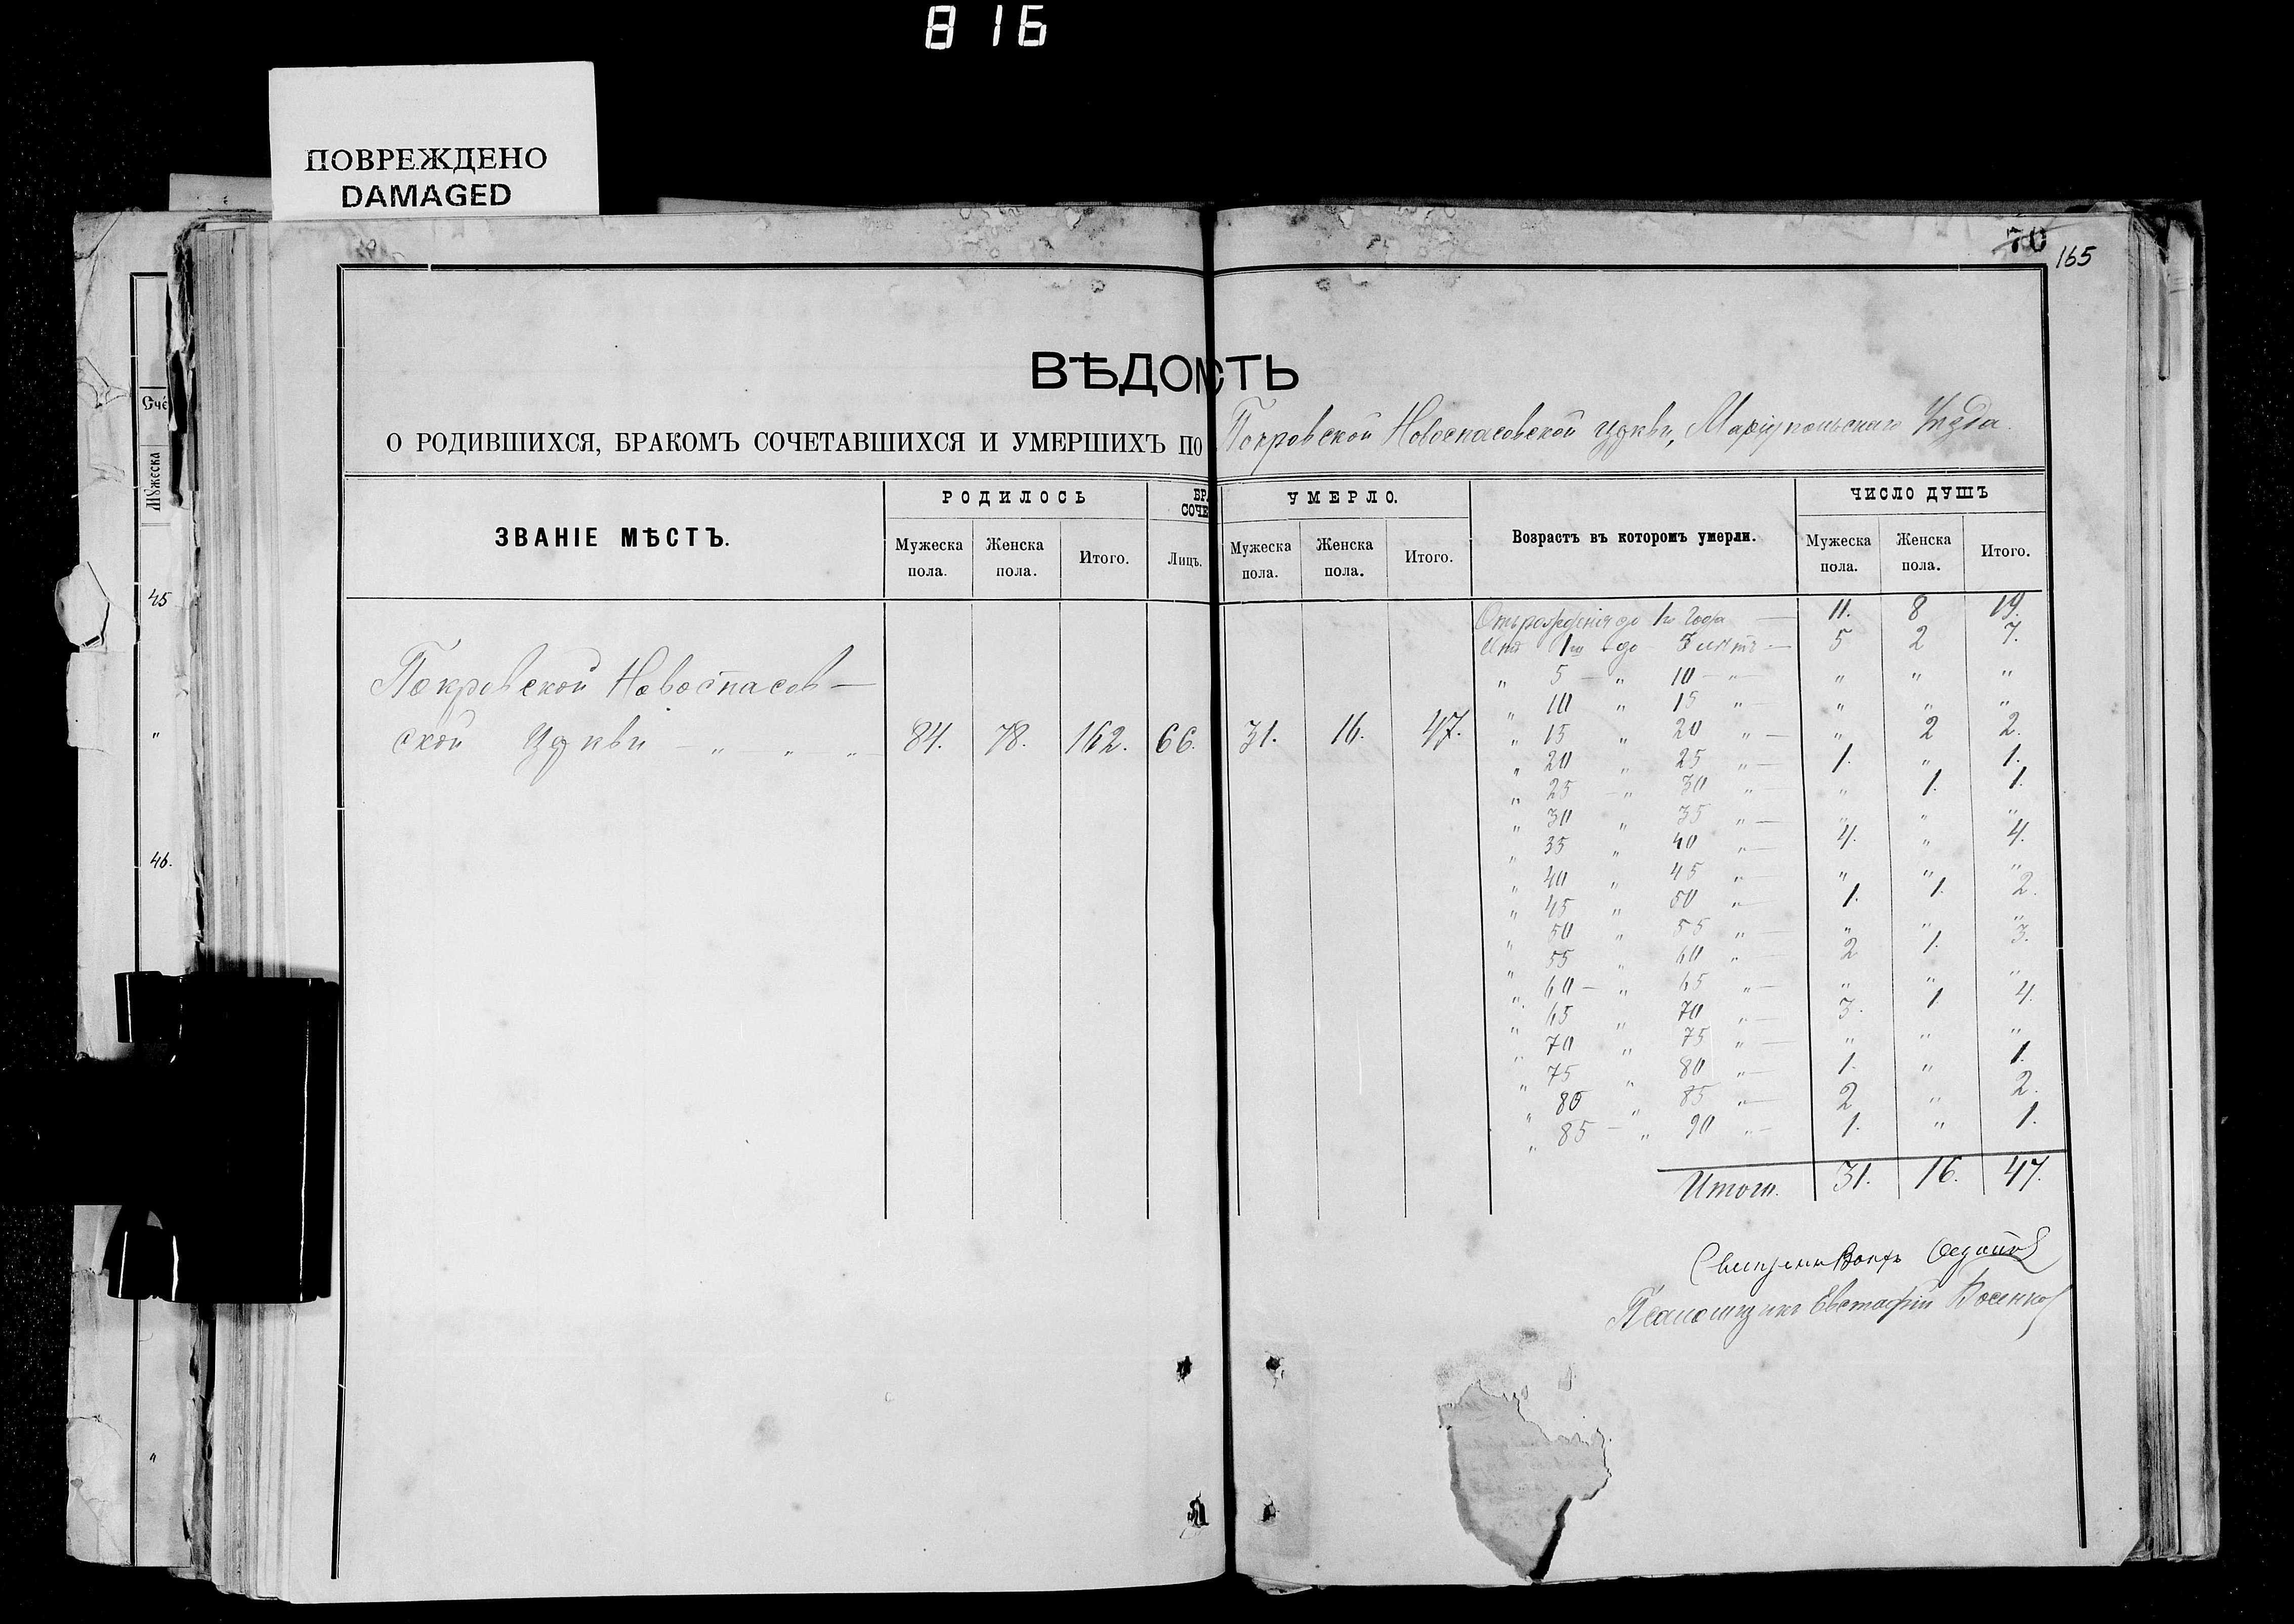 816
ПОВРЕЖДЕНО
DAMAGED
70
165
Мужеска
45
"
46.
"
ВѢДОМОСТЬ
О РОДИВШИХСЯ, БРАКОМЪ СОЧЕТАВШИХСЯ И УМЕРШИХЪ ПО Покровской Новоспасовской Церкви, Маріупольскаго Уѣзда.
ЗВАНІЕ МѢСТЪ. РОДИЛОСЬ БРА СОЧЕ УМЕРЛО. Возрастъ въ которомъ умерли. ЧИСЛО ДУШЪ
Мужеска пола. Женска пола. Итого. Лицъ. Мужеска пола. Женска пола. Итого. Мужеска пола. Женска пола. Итого.
Покровской Новоспасов-
ской Церкви - " " " 84. 78. 162. 66. 31. 16. 47.
Отъ рожденія до 1го года — 11. 8 19.
Отъ 1го до 5 лѣтъ — 5 2 7.
" 5 — " 10 — " — " " "
" 10 " 15 " — " " "
" 15 " 20 " — " 2 2.
" 20 " 25 " — 1. " 1.
" 25 — " 30 " — " 1. 1.
" 30 " 35 " — " " "
" 35 " 40 " — 4. " 4.
" 40 " 45 " — " " "
" 45 " 50 " — 1. 1. 2.
" 50 " 55 " — " " "
" 55 " 60 " — 2 1. 3.
" 60 — " 65 " — " " "
" 65 " 70 " — 3. 1 4.
" 70 " 75 " — " " "
" 75 " 80 " — 1. " 1.
" 80 " 85 " — 2 " 2.
" 85 — " 90 " — 1. " 1.
Итого. 31. 16. 47.
Священникъ
Псаломщикъ Евстафій